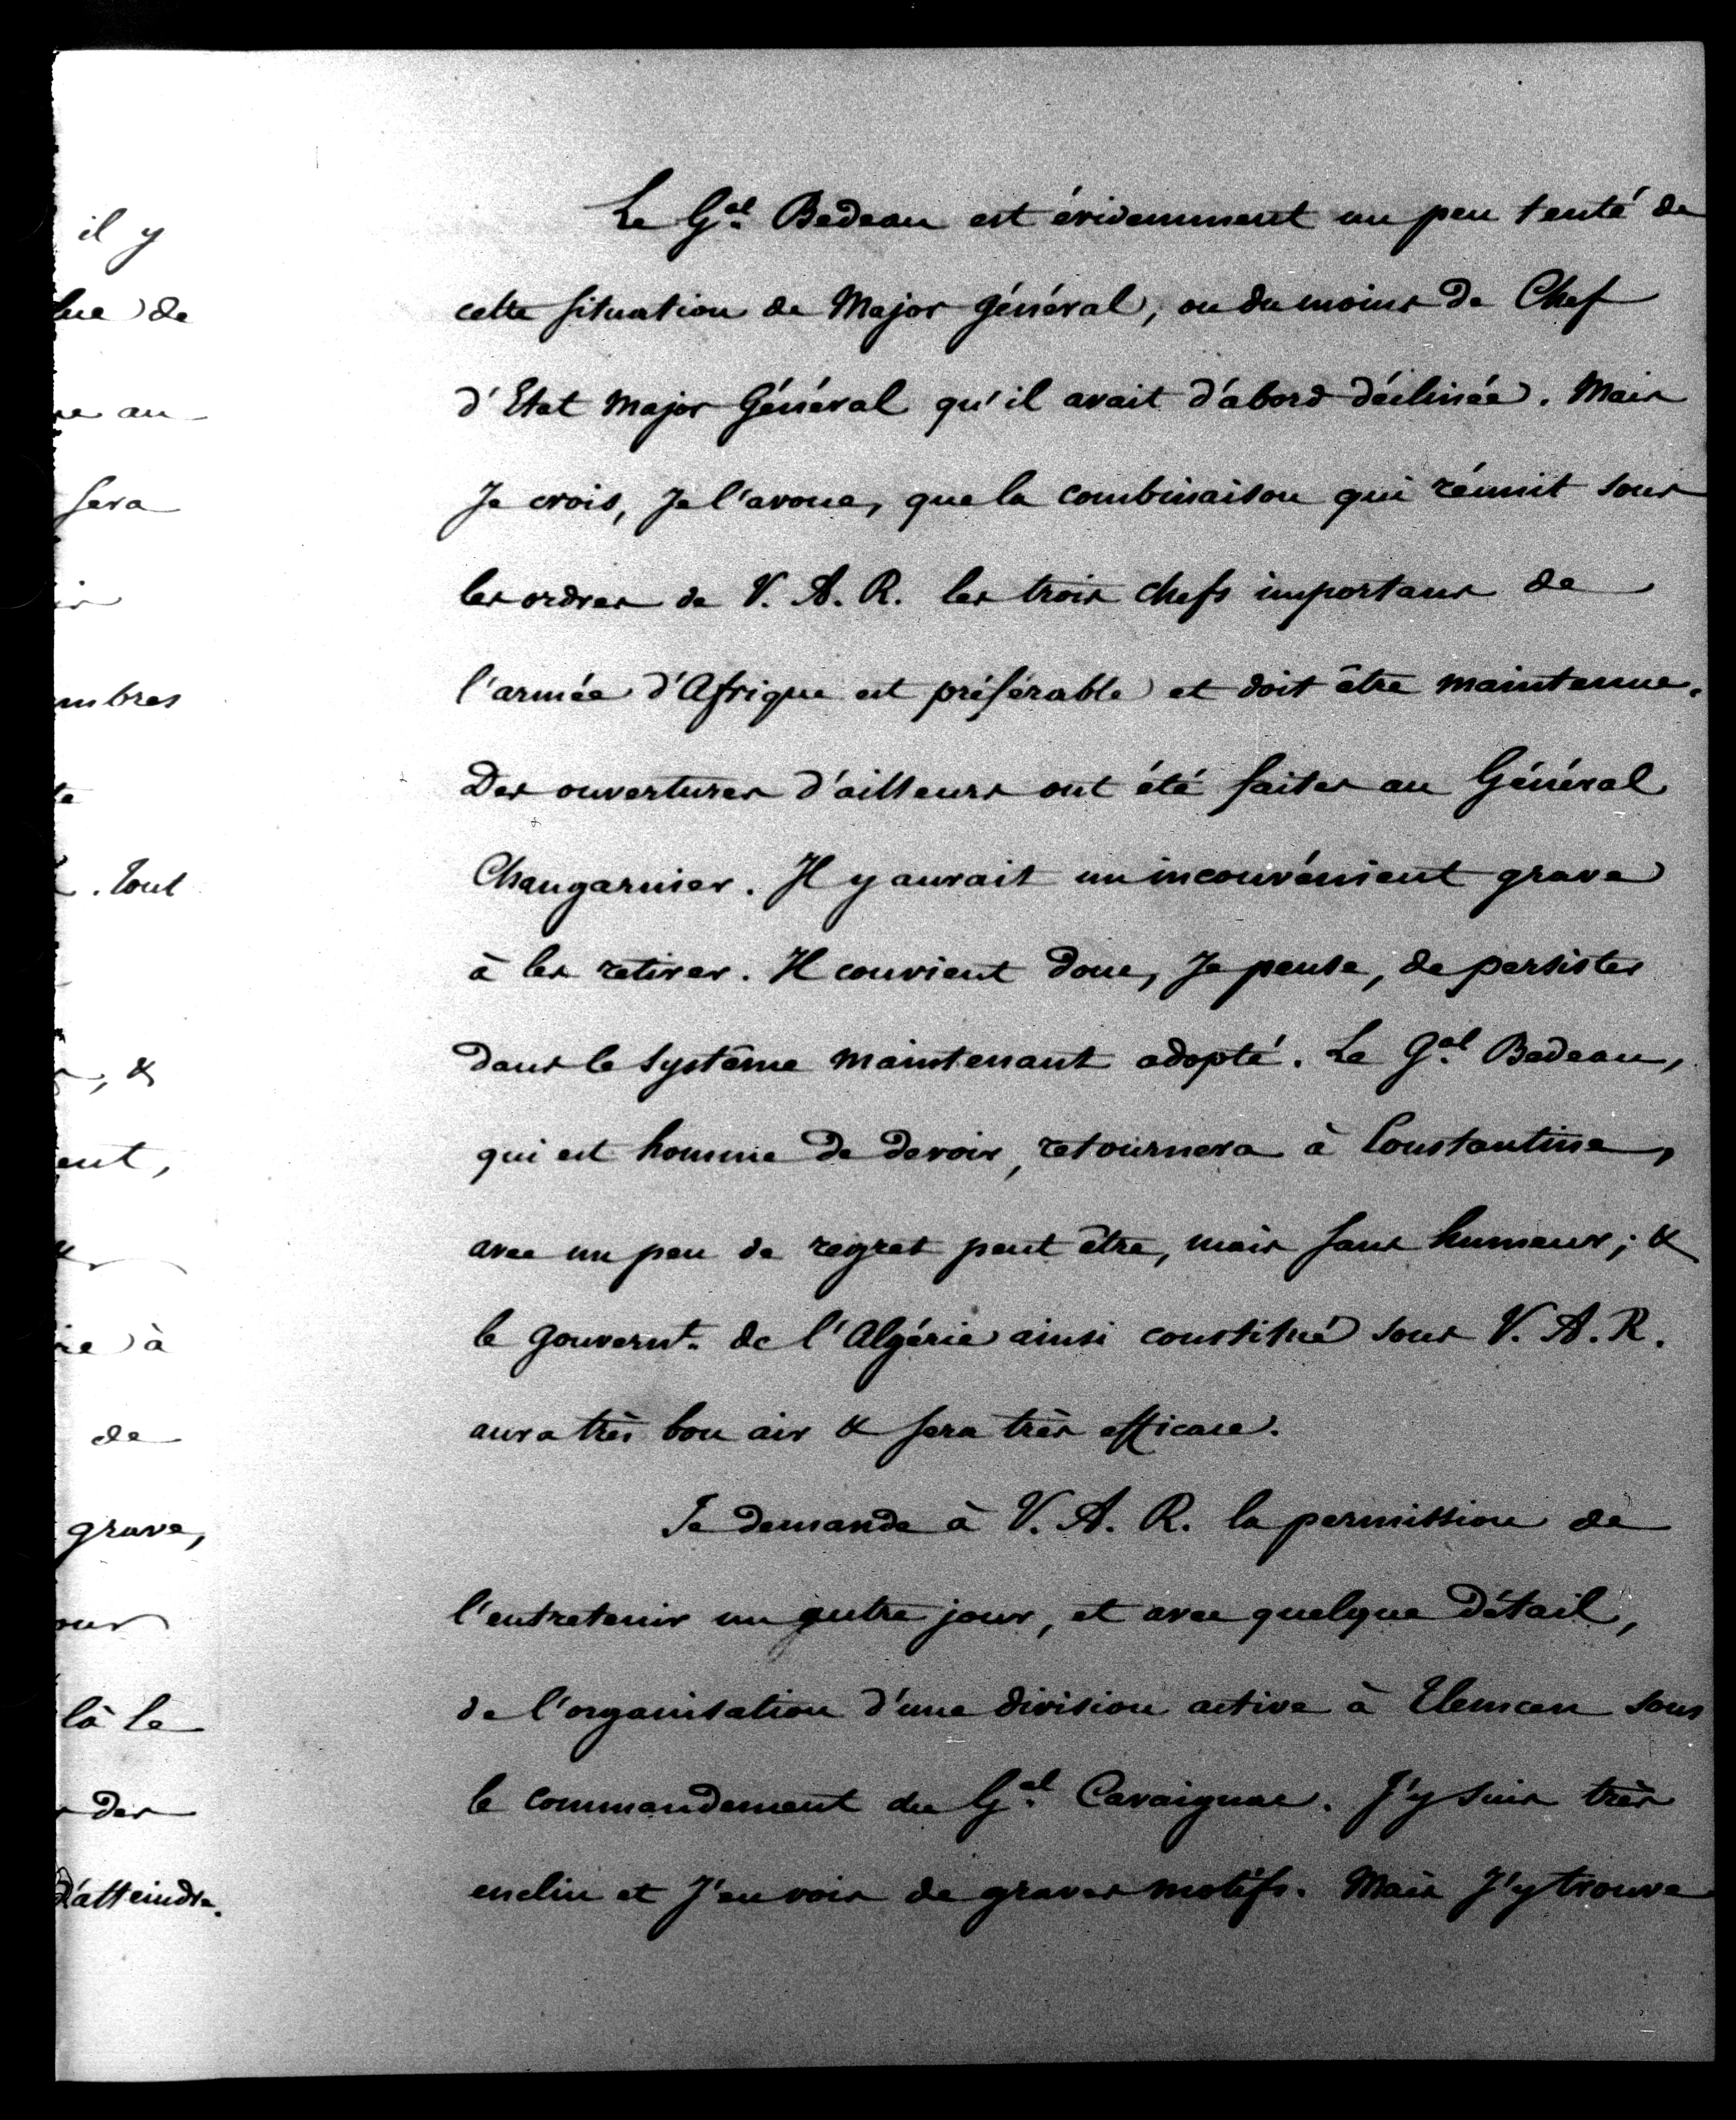 il y
de
au
sera
mbres
. tout
, &
ent,
&
à
de
grave,
là le
des
d'atteindre.
Le Gal. Bedeau est évidemment un peu tenté de
cette situation de Major général, ou du moins de Chef
d'Etat Major Général qu'il avait d'abord déclinée. Mais
Je crois, Je l'avoue, que la combinaison qui réunit sous
les ordres de V. A. R. les trois chefs importans de
l'armée d'Afrique est préférable et doit être maintenue.
Des ouvertures d'ailleurs ont été faites au Général
Changarnier. Il y aurait un inconvénient grave
à les retirer. Il convient donc, Je pense, de persister
dans le système maintenant adopté. Le Gal. Bedeau,
qui est homme de devoir, retournera à Constantine,
avec un peu de regret peut être, mais sans humeur; &
le gouvernt. de l'Algérie ainsi constitué sous V. A. R.
aura très bon air & sera très efficace.
Je demande à V. A. R. la permission de
l'entretenir un autre jour, et avec quelque détail,
de l'organisation d'une division active à Tlemcen sous
le commandement du Gal. Cavaignac. J'y suis très
enclin et J'en vois de graves motifs. Mais J'y trouve